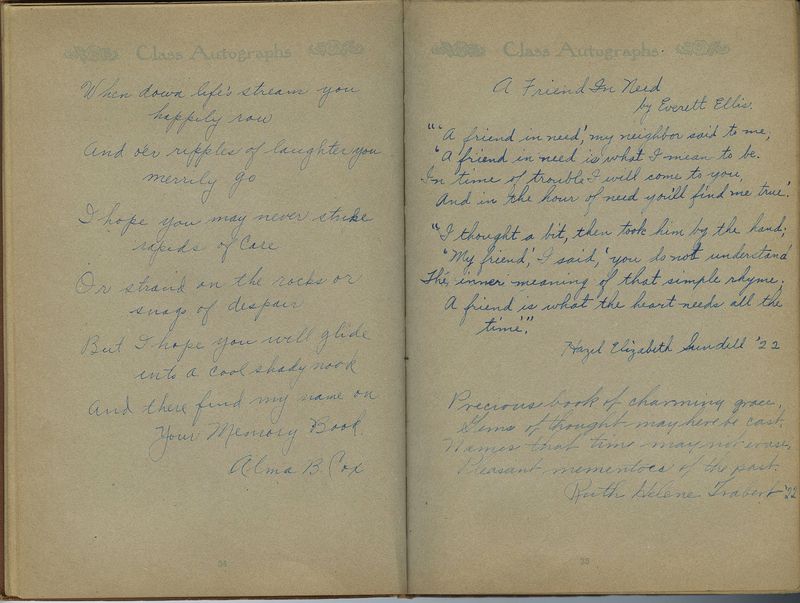 Class Autographs
When down life's stream you
happily row
And o'er ripples of laughter you
merrily go
I hope you may never strike
rapids of care
Or strand on the rocks or
snags of despair
But I hope you will glide
into a cool shady nook
And there find my name on
Your Memory Book.
Alma B Cox
34
Class Autographs
A Friend In Need
by Everett Ellis.
"'A friend in need,' my neighbor said to me,
'A friend in need is what I mean to be.
In time of trouble I will come to you,
And in the hour of need you'll find me true.'
"I thought a bit, then took him by the hand;
'My friend,' I said, 'you do not understand
The inner meaning of that simple rhyme;
A friend is what the heart needs all the
time.'"
Hazel Elizabeth Sundell '22
Precious book of charming grace,
Gems of thought may here be cast.
Names that time may not erase,
Pleasant mementoes of the past.
Ruth Helene Trabert '22